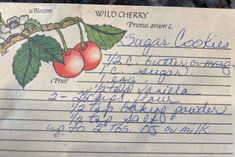 a Blossom
WILD CHERRY
Prunus avium L.
Sugar Cookies
1/2 C. butter or marg.
1 " sugar
1 egg
1/2 tsp vanilla
2 - cups flour
1/2 tsp baking powder
1/2 tsp salt
up to 2 tbs. or milk
Fruit